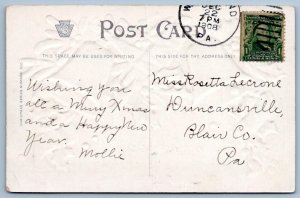 POST CARD
THIS SPACE MAY BE USED FOR WRITING
THIS SIDE FOR THE ADDRESS ONLY
DEC
22
7 PM
1908
PA.
Wishing you
all a Merry Xmas
and a Happy New
Year.
Mollie
Miss Rosetta Lecrone
Duncansville,
Blair Co.
Pa